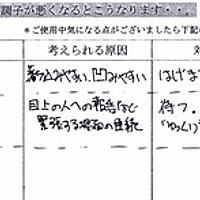 調子が悪くなるとこうなります・・・
*ご使用中気になる点がございましたら下記に
考えられる原因
対
落込みやすい、凹みやすい
はげます
目上の人への報告など
緊張する場面の連続
待つ。
"ゆっくり